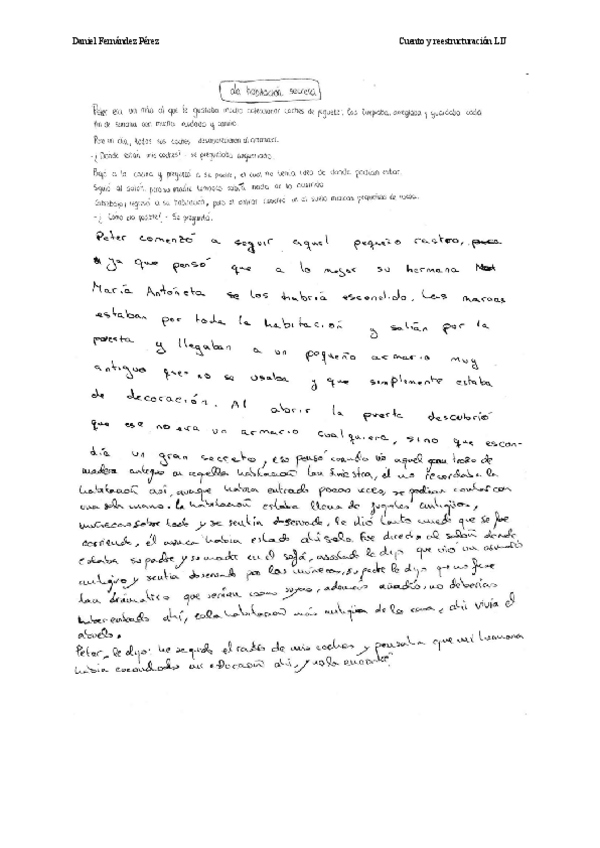 Daniel Fernández Pérez Cuento y reestructuración LIJ
La habitación secreta
Peter era un niño al que le gustaba mucho coleccionar coches de juguete. Los limpiaba, arreglaba y guardaba cada
fin de semana con mucho cuidado y
Pero un día, todos sus coches desaparecieron
-¿Dónde están mis coches? - se preguntaba
Bajó a la cocina y preguntó a su padre, el cual no tenía idea de donde podían estar.
Siguió al salón, pero su madre tampoco sabía nada de lo ocurrido
regresó a su habitación, pero al entrar en el suelo marcas pequeñitas de
-¿Cómo es posible? - Se preguntó.
Peter comenzó a seguir aquel pequeño rastro,
ya que pensó que a lo mejor su hermana
María Antoñeta se los habría escondido. Las marcas
estaban por toda la habitación y salían por la
puerta y llegaban a un pequeño armario muy
antiguo que no se usaba y que simplemente estaba
de decoración. Al abrir la puerta descubrió
que ese no era un armario cualquiera, sino que escon-
día un gran secreto, eso pensó cuando vio aquel gran trozo de
madera antiguo en aquella habitación tan siniestra, él no recordaba la
habitación así, aunque había entrado pocas veces, se podían contar con
una sola mano. La habitación estaba llena de juguetes antiguos,
muñecas sobre todo y se sentía observado, le dió tanto miedo que se fue
corriendo, él nunca había estado ahí solo. Fue directo al salón donde
estaba su padre y su madre en el sofá, asustado le dijo que vio un
antiguo y sentía observado por las muñecas, su padre le dijo que no fuese
tan dramático que serían cosas suyas, además añadió, no deberías
haber entrado ahí, es la habitación más antigua de la casa, ahí vivía el
abuelo.
Peter, le dijo: he seguido el de mis coches y pensaba que mi hermana
había escondido mi colección ahí, y no la encontré".